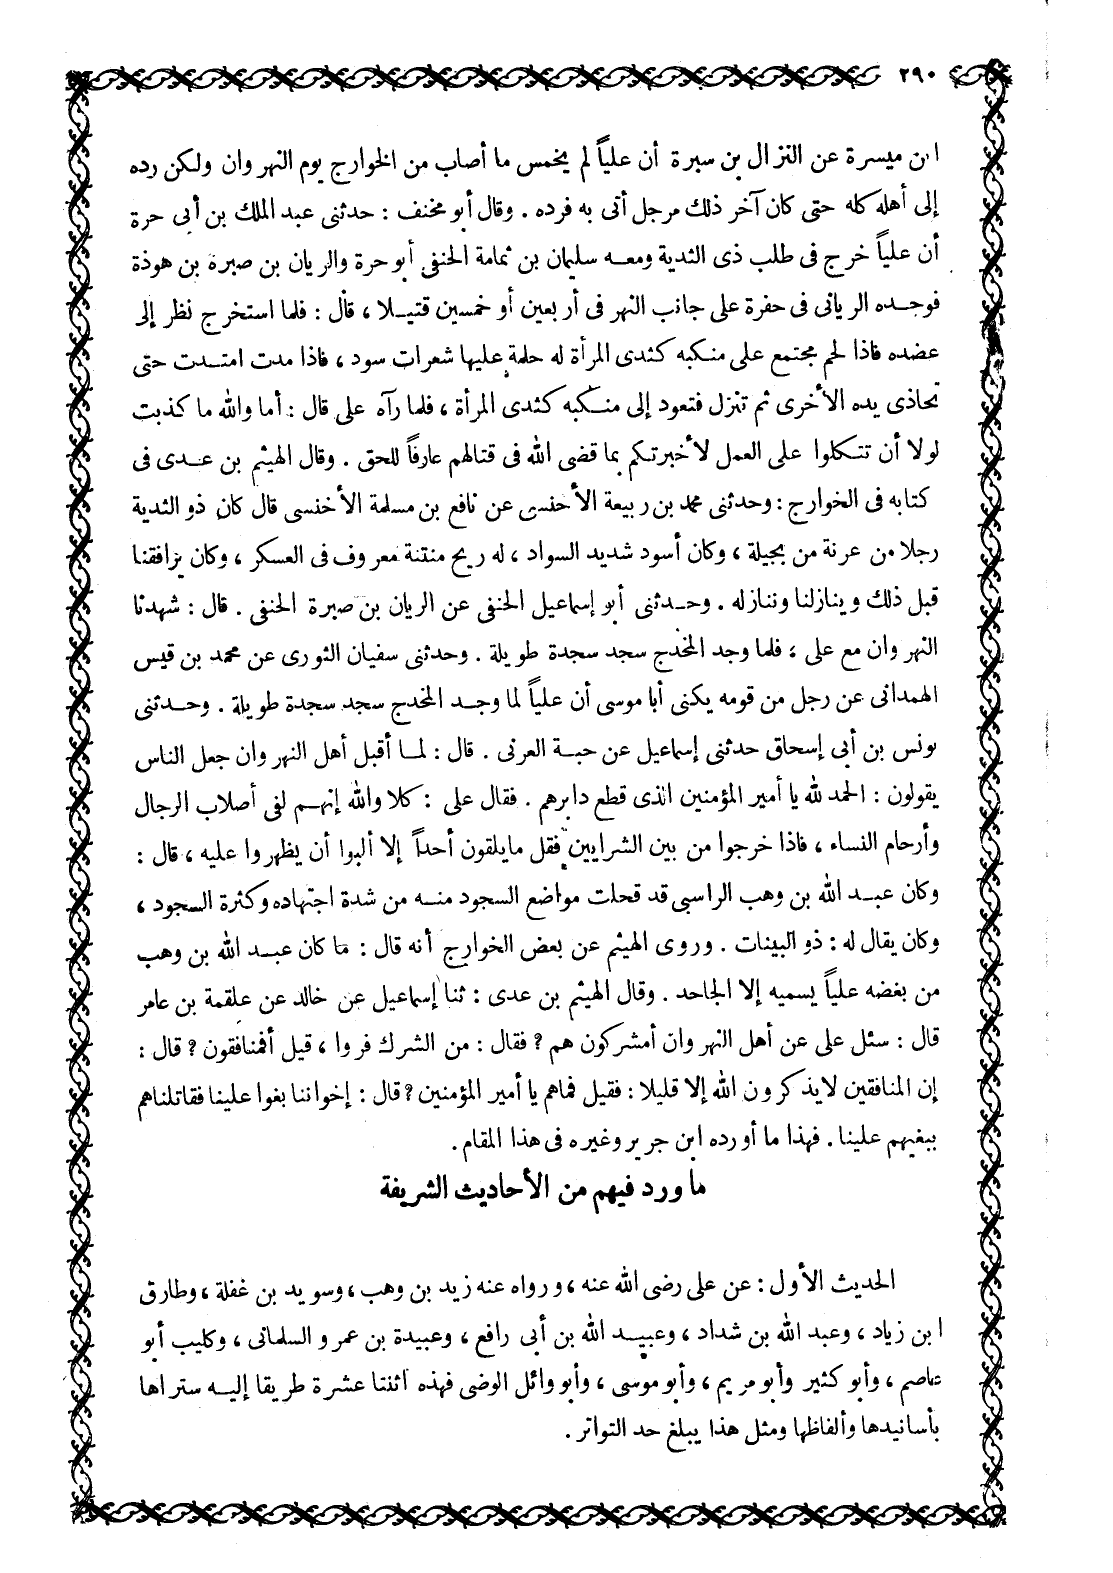 ٢٩٠
ابن ميسرة عن النزال بن سبرة أن علياً لم يخمس ما أصاب من الخوارج يوم النهروان ولكن رده
إلى أهله كله حتى كان آخر ذلك مرجل أتى به فرده . وقال أبو مخنف : حدثنى عبد الملك بن أبى حرة
أن علياً خرج فى طلب ذى الثدية ومعه سليمان بن ثمامة الحنفى أبو حرة والريان بن صبرة بن هوذة
فوجده الريانى فى حفرة على جانب النهر فى أربعين أو خمسين قتيلا ، قال : فلما استخرج نظر إلى
عضده فاذا لحم مجتمع على منكبه كثدى المرأة له حلمة عليها شعرات سود ، فاذا مدت امتدت حتى
تحاذى يده الأخرى ثم تنزل فتعود إلى منكبه كثدى المرأة ، فلما رآه على قال : أما والله ما كذبت
لولا أن تتكلوا على العمل لأخبرتكم بما قضى الله فى قتالهم عارفاً للحق . وقال الهيثم بن عدى فى
كتابه فى الخوارج : وحدثنى محمد بن ربيعة الأخنسى عن نافع بن مسلمة الأخنسى قال كان ذو الثدية
رجلا من عرنة من بجيلة ، وكان أسود شديد السواد ، له ريح منتنة معروف فى العسكر ، وكان يرافقنا
قبل ذلك وينازلنا وننازله . وحدثنى أبو إسماعيل الحنفى عن الريان بن صبرة الحنفى . قال : شهدنا
النهروان مع على ، فلما وجد المخدج سجد سجدة طويلة . وحدثنى سفيان الثورى عن محمد بن قيس
الهمدانى عن رجل من قومه يكنى أبا موسى أن علياً لما وجد المخدج سجد سجدة طويلة . وحدثنى
يونس بن أبى إسحاق حدثنى إسماعيل عن حبة العرنى . قال : لما أقبل أهل النهروان جعل الناس
يقولون : الحمد لله يا أمير المؤمنين الذى قطع دابرهم . فقال على : كلا والله إنهم لفى أصلاب الرجال
وأرحام النساء ، فاذا خرجوا من بين الشرايين فقل ما يلقون أحداً إلا ألبوا أن يظهروا عليه ، قال :
وكان عبد الله بن وهب الراسبى قد قحلت مواضع السجود منه من شدة اجتهاده وكثرة السجود ،
وكان يقال له : ذو البينات . وروى الهيثم عن بعض الخوارج أنه قال : ما كان عبد الله بن وهب
من بغضه علياً يسميه إلا الجاحد . وقال الهيثم بن عدى : ثنا إسماعيل عن خالد عن علقمة بن عامر
قال : سئل على عن أهل النهروان أمشركون هم ? فقال : من الشرك فروا ، قيل أفمنافقون ? قال :
إن المنافقين لايذكرون الله إلا قليلا : فقيل فماهم يا أمير المؤمنين ? قال : إخواننا بغوا علينا فقاتلناهم
ببغيهم علينا . فهذا ما أورده ابن جرير وغيره فى هذا المقام .
ما ورد فيهم من الأحاديث الشريفة
الحديث الأول : عن على رضى الله عنه ، ورواه عنه زيد بن وهب ، وسويد بن غفلة ، وطارق
ابن زياد ، وعبد الله بن شداد ، وعبيد الله بن أبى رافع ، وعبيدة بن عمرو السلمانى ، وكليب أبو
عاصم ، وأبو كثير وأبو مريم ، وأبو موسى ، وأبو وائل الوضى فهذه اثنتا عشرة طريقا إليه ستراها
بأسانيدها وألفاظها ومثل هذا يبلغ حد التواتر .